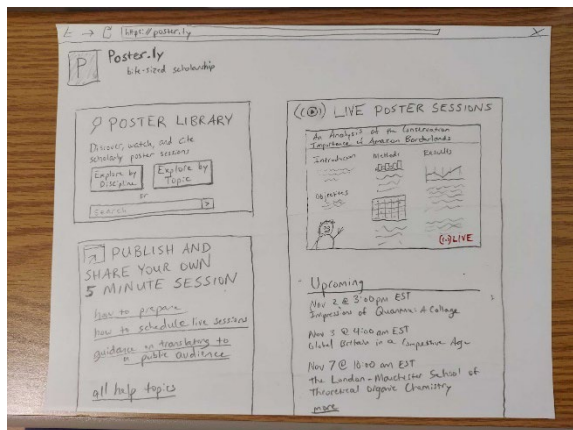 http://poster.ly
P
Poster.ly
bite-sized scholarship
POSTER LIBRARY
Discover, watch, and cite
scholarly poster sessions
Explore by
Discipline
Explore by
Topic
or
Search
PUBLISH AND
SHARE YOUR OWN
5 MINUTE SESSION
how to prepare
how to schedule live sessions
guidance on translating to
a public audience
all help topics
LIVE POSTER SESSIONS
An Analysis of the Conservation
Importance of Amazon Borderlands
Introduction
Methods
Results
Objectives
LIVE
Upcoming
Nov 2 @ 3:00pm EST
Impressions of Quantum: A Collage
Nov 3 @ 4:00 am EST
Global Britain in a Competitive Age
Nov 7 @ 10:00 am EST
The London-Manchester School of
Theoretical Organic Chemistry
more